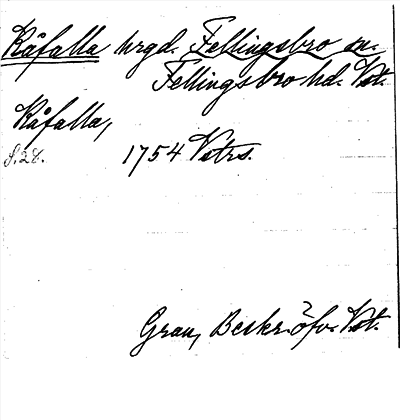 Råfalla hrgd. Fellingsbro sn.
Fellingsbro hd. Vst.
Råfalla,
s. 28. 1754 Vstrs.
Grau, Beskr. öfv. Vst.